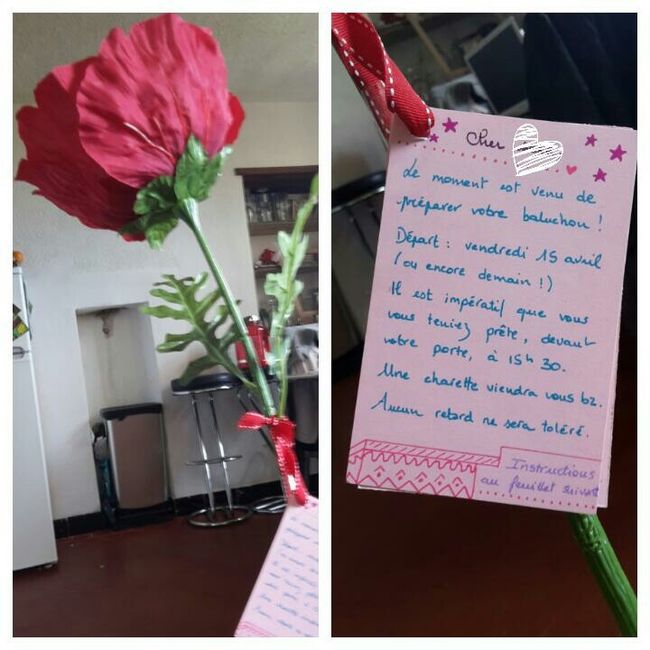 Cher
Le moment est venu de
préparer votre baluchon !
Départ : vendredi 15 avril
(ou encore demain !)
Il est impératif que vous
vous teniez prête, devant
votre porte, à 15h30.
Une charette viendra vous
Aucun retard ne sera toléré.
Instructions
au feuillet suivant